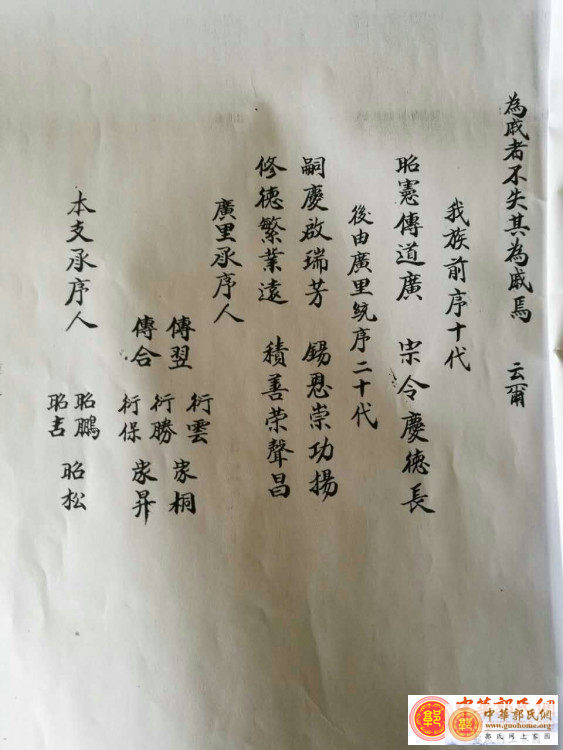 為戚者不失其為戚焉　云爾
我族前序十代
昭憲傳道廣　宗令慶德長
後由廣里統序二十代
嗣慶啟瑞芳　錫恩崇功揚
修德繁業遠　積善荣聲昌
廣里承序人
衍雲
傳翌　衍勝　家桐
傳合　衍保　家昇
本支承序人
昭鵬　昭松
昭吉
中華郭氏網
www.guohome.org
郭氏网上家园